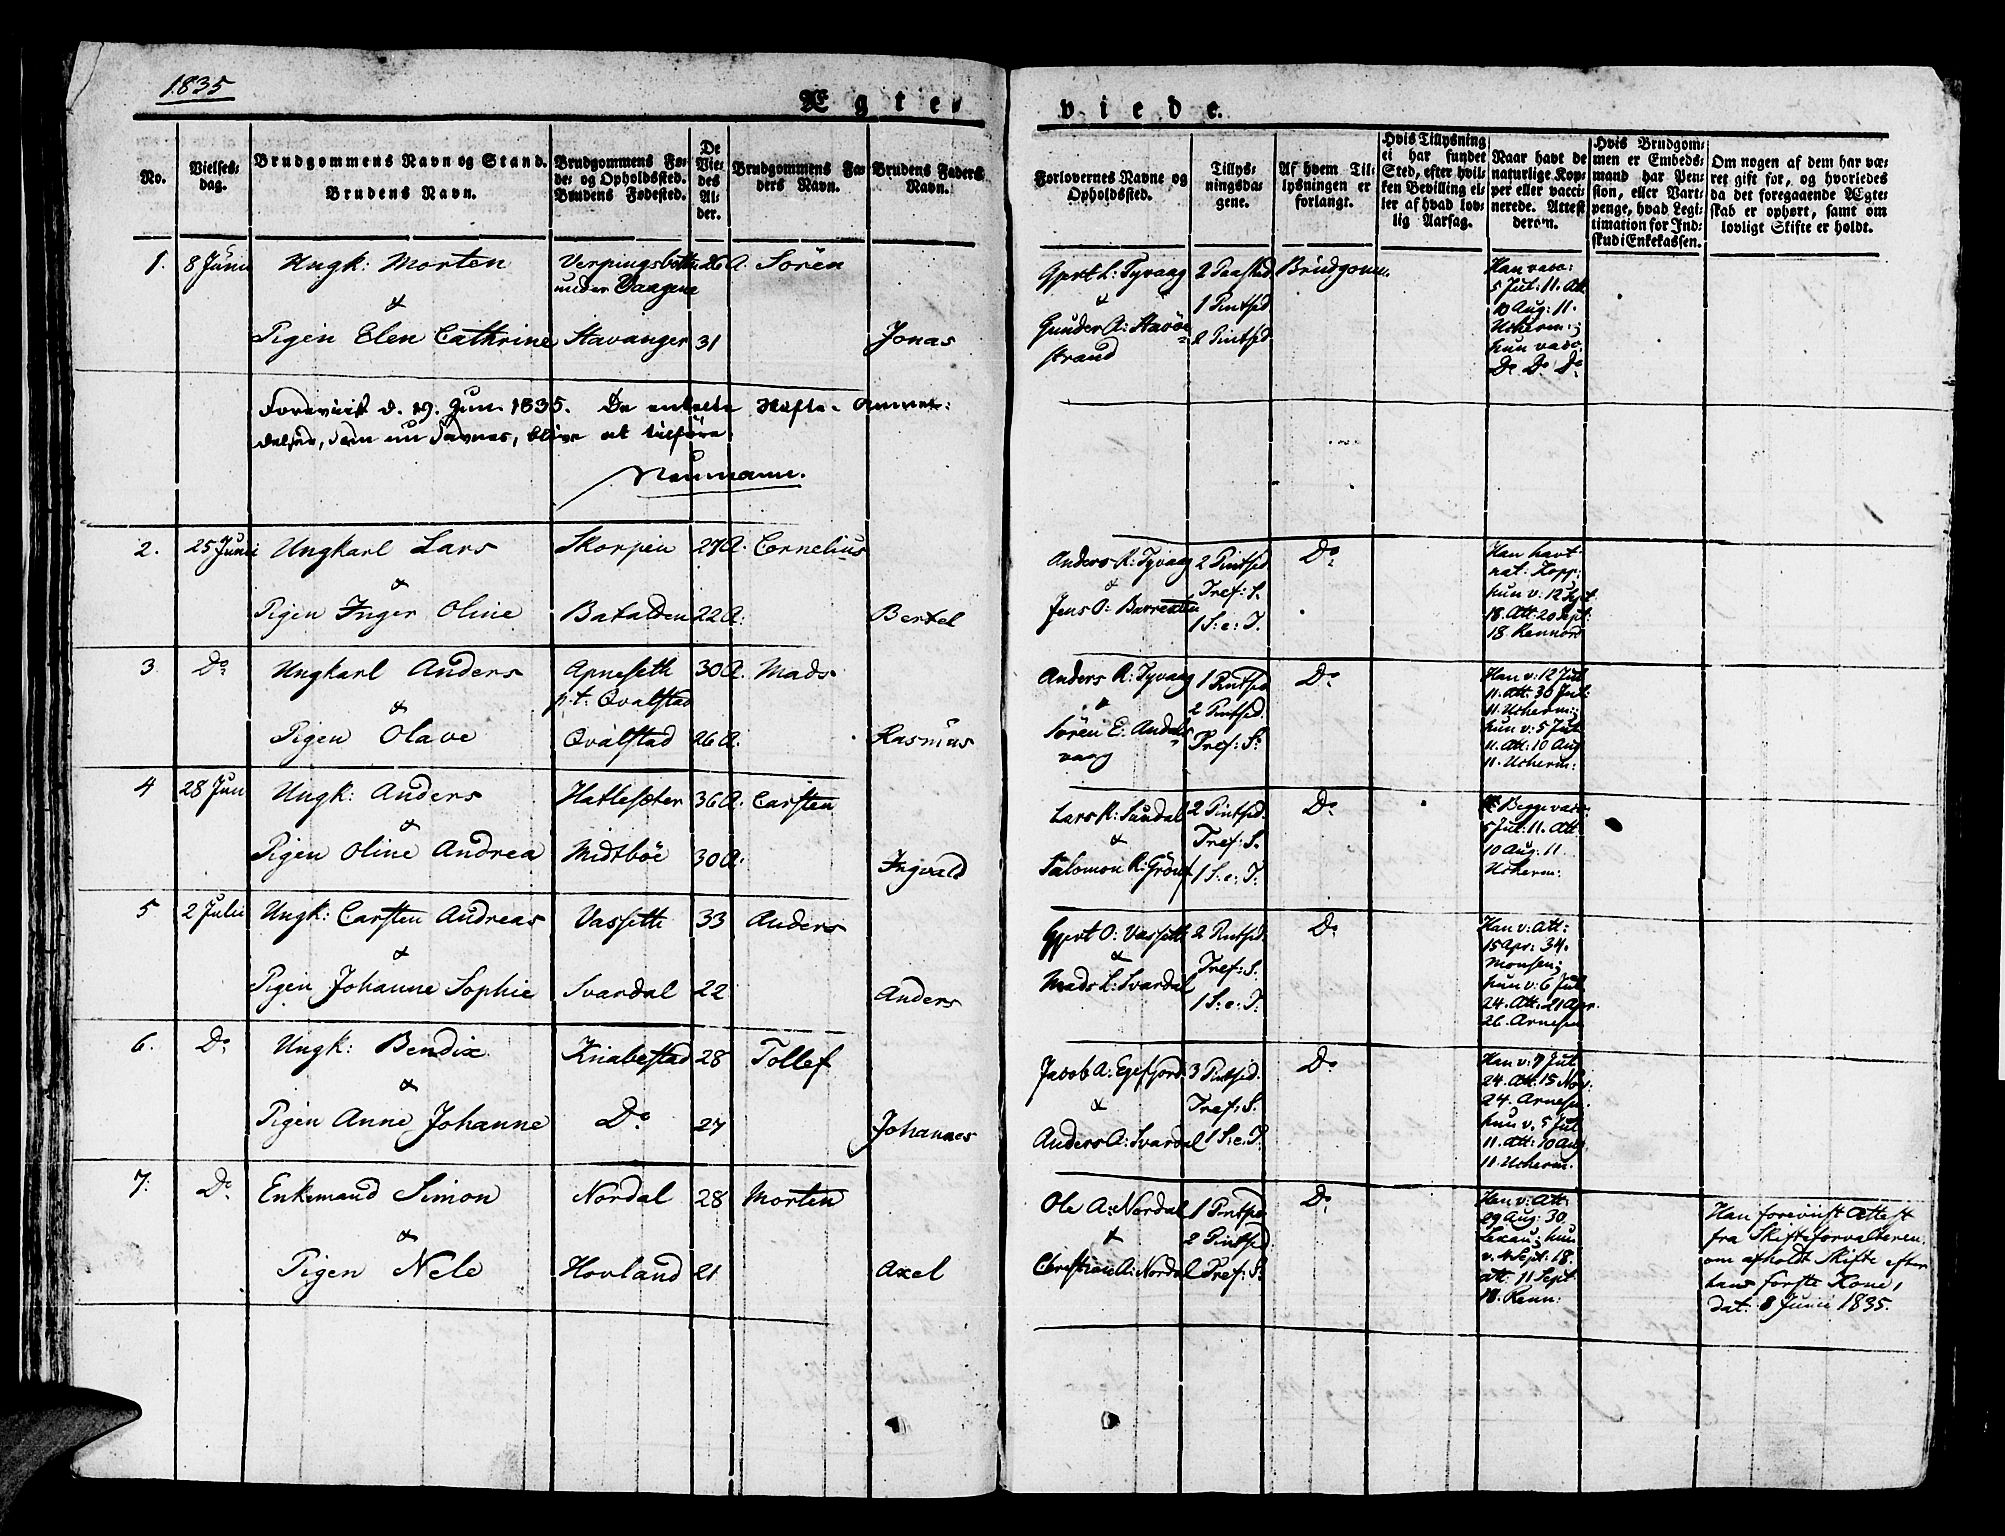 1835
Ægte-
viede.
No.
Vielses-
dag.
Brudgommens Navn og Stand.
Brudens Navn.
Brudgommens Fø-
de- og Opholdssted.
Brudens Fødested.
De
Vie-
des
Al-
der.
Brudgommens Fa-
ders Navn.
Brudens Faders
Navn.
Forlovernes Navne og
Opholdssted.
Tillys-
ningsda-
gene.
Af hvem Til-
lysningen er
forlangt.
Hvis Tillysning
ei har fundet
Sted, efter hvil-
ken Bevilling el-
ler af hvad lov-
lig Aarsag.
Naar havt de
naturlige Kop-
per eller vacci-
nerede. Attest
derom.
Hvis Brudgom-
men er Embeds-
mand har Pen-
sion, eller Vart-
penge, hvad Legi-
timation for Ind-
skud i Enkekassen.
Om nogen af dem har væ-
ret gift før, og hvorledes
da det foregaaende Ægte-
skab er ophørt, samt om
lovligt Skifte er holdt.
1. 8 Junii Ungk: Morten
&
Pigen Elen Cathrine
under Vaagene 26 A. Sören
Stavanger 31 Jonas
Gjert L: Tyvaag
&
Gunder A: Stavöe-
strand
2 Paasted
1 Pintsed
2 Pintsed
Brudgom.
Han vacc:
5 Jul: 11. Att.
10 Aug: 11.
Ucherm:;
hun vacc.
Do Do Do
Foreviist d. 19. Jun. 1835. De enkelte Hefte-Anmel-
delser, som nu savnes, blive at tilføre.
Neumann.
2. 25 Junii Ungkarl Lars
&
Pigen Inger Oline
Skorpen 27 A. Cornelius
Batalden 22 A: Bertel
Anders R: Tyvaag
&
Jens O:
2 Pintsed
Tref: S.
1 S: e: T.
Do
Han havt
nat: Kopp:
hun v: 12 Sept
18. Att: 20 Sept:
18. Rennord
3 Do Ungkarl Anders
&
Pigen Olave
Apneseth
p.t. Qvalstad 30 A. Mads
Qvalstad 26 A. Rasmus
Anders R: Tyvaag
&
Sören E. Andals-
vaag
1 Pintsed
2 Pintsed.
Tref: S:
Do
Han v: 12 Jul
11. Att: 30 Jul:
11. Ucherm:;
hun v: 5 Jul
11. Att: 10 Aug
11. Ucherm:
4 28 Jun Ungk: Anders
&
Pigen Oline Andrea
Hatlesæter 36 A. Carsten
Midtböe 30 A: Ingvald
Lars R: Sandal
&
Salomon R:
2 Pintsed.
Tref: S.
1 S: e: T:
Do
Begge vacc:
5 Jul: 11. Att:
10 Aug: 11.
Ucherm:
5 2 Julii Ungk: Carsten Andreas
&
Pigen Johanne Sophie
Vasseth 33 Anders
Svardal 22 Anders
Gjert O: Vasseth
&
Mads L: Svardal
2 Pintsed.
Tref: S.
1 S: e: T.
Do
Han v: Att:
15 Apr: 34.
Monsen;
hun v: 6 Jul
24. Att: 21 Apr.
26. Arnesen
6. Do Ungk: Bendix
&
Pigen Anne Johanne
Knabestad 28 Tollef
Do 27 Johannes
Jacob A: Egefjord.
&
Anders A: Svardal
3 Pintsed.
Tref: S.
1 S: e: T.
Do
Han v: 7 Jul
24. Att: 15 Nov:
24. Arnesen.
hun v. 5 Jul
11. Att: 10 Aug
11. Ucherm.
7. Do Enkemand Simon
&
Pigen Nele
Nordal 28 Morten
Hovland 21 Axel
Ole A: Nordal
&
Christian A: Nordal
1 Pintsed
2 Pintsed
Tref: S:
Do
Han v: Att:
29 Aug: 30.
Lexau; hun
v. 4 Sept: 18.
Att: 11 Sept
18. Renn:
Han foreviist Attest
fra Skifteforvalteren
om afholdt Skifte efter
hans første Kone,
dat: 8 Junii 1835.